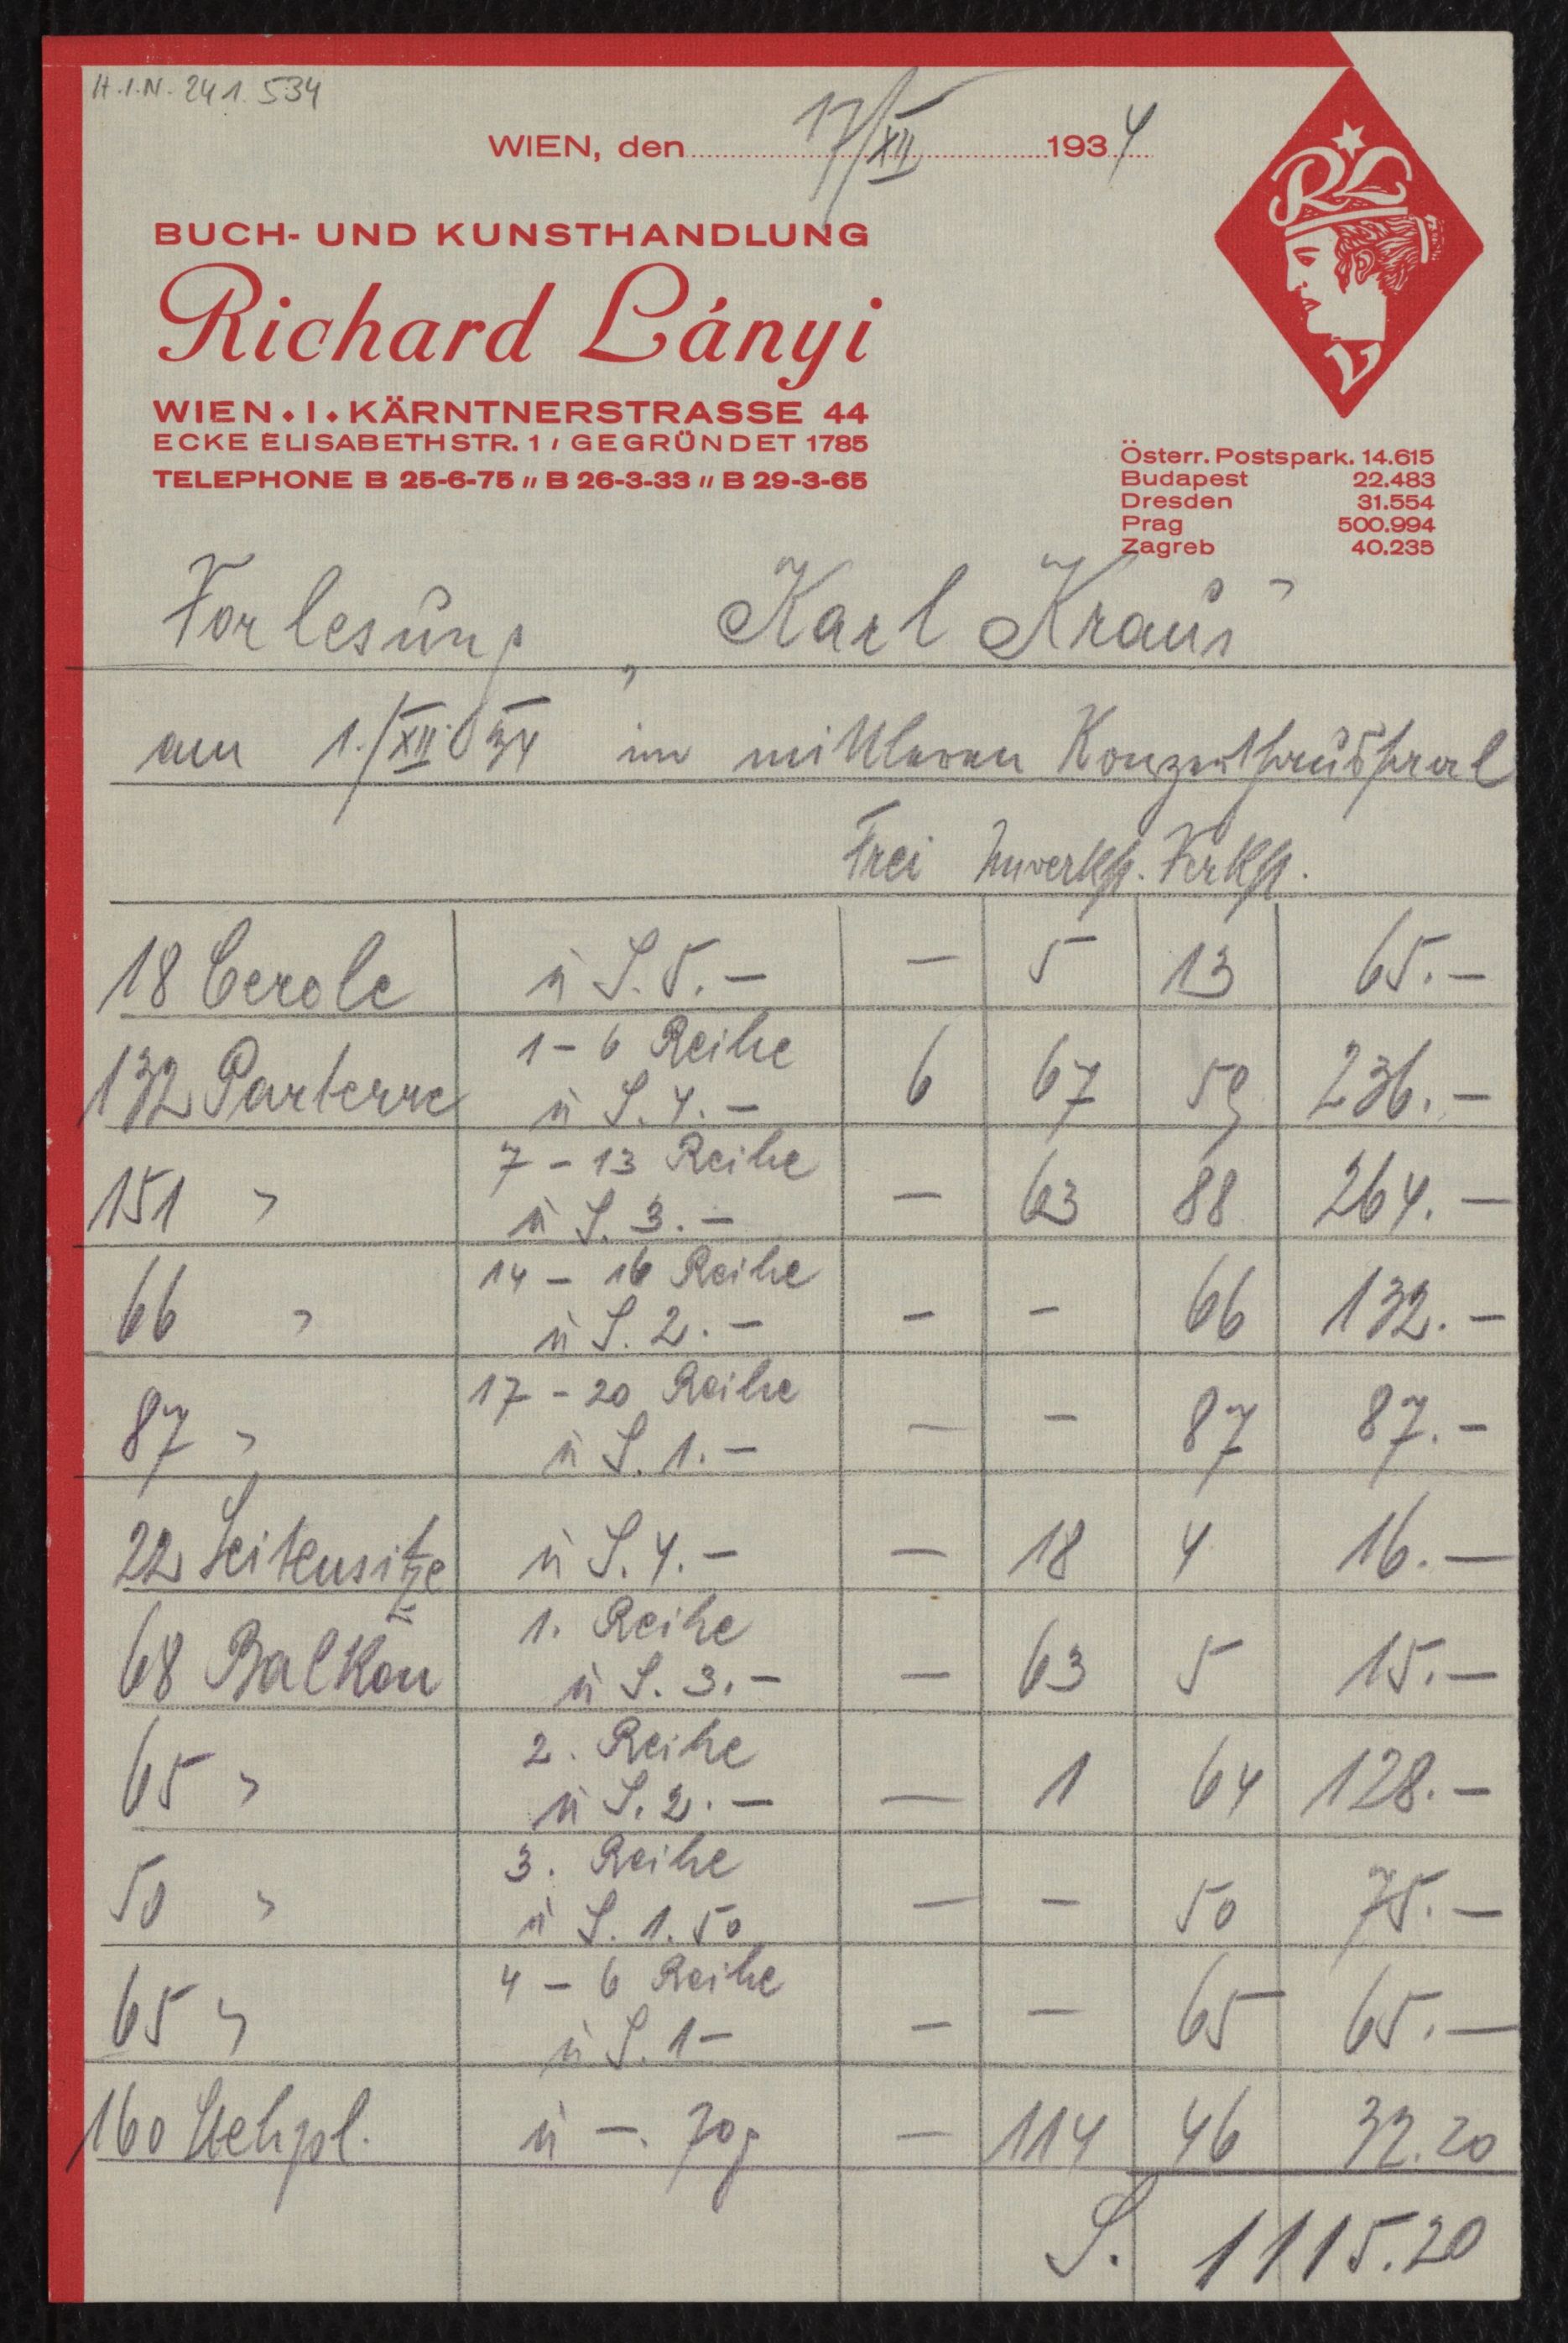 H.I.N. 241.534
WIEN, den 17/XII 1934
RL
BUCH- UND KUNSTHANDLUNG
Richard Lányi
WIEN • I • KÄRNTNERSTRASSE 44
ECKE ELISABETHSTR. 1 / GEGRÜNDET 1785
TELEPHONE B 25-6-75 // B 26-3-33 // B 29-3-65
Österr. Postspark. 14.615
Budapest 22.483
Dresden 31.554
Prag 500.994
Zagreb 40.235
Vorlesung „Karl Kraus"
am 1./XII 34 im mittleren Konzerthaussaal
Frei Unverkft. Verkft.
18 Cercle à S. 5.— — 5 13 65.—
1–6 Reihe
132 Parterre à S. 4.— 6 67 59 236.—
7–13 Reihe
151 " à S. 3.— — 63 88 264.—
14–16 Reihe
66 " à S. 2.— — — 66 132.—
17–20 Reihe
87 " à S. 1.— — — 87 87.—
22 Seitensitze à S. 4.— — 18 4 16.—
1. Reihe
68 Balkon à S. 3.— — 63 5 15.—
2. Reihe
65 " à S. 2.— — 1 64 128.—
3. Reihe
50 " à S. 1.50 — — 50 75.—
4–6 Reihe
65 " à S. 1— — — 65 65.—
160 Stehpl. à —.70g — 114 46 32.20
S. 1115.20